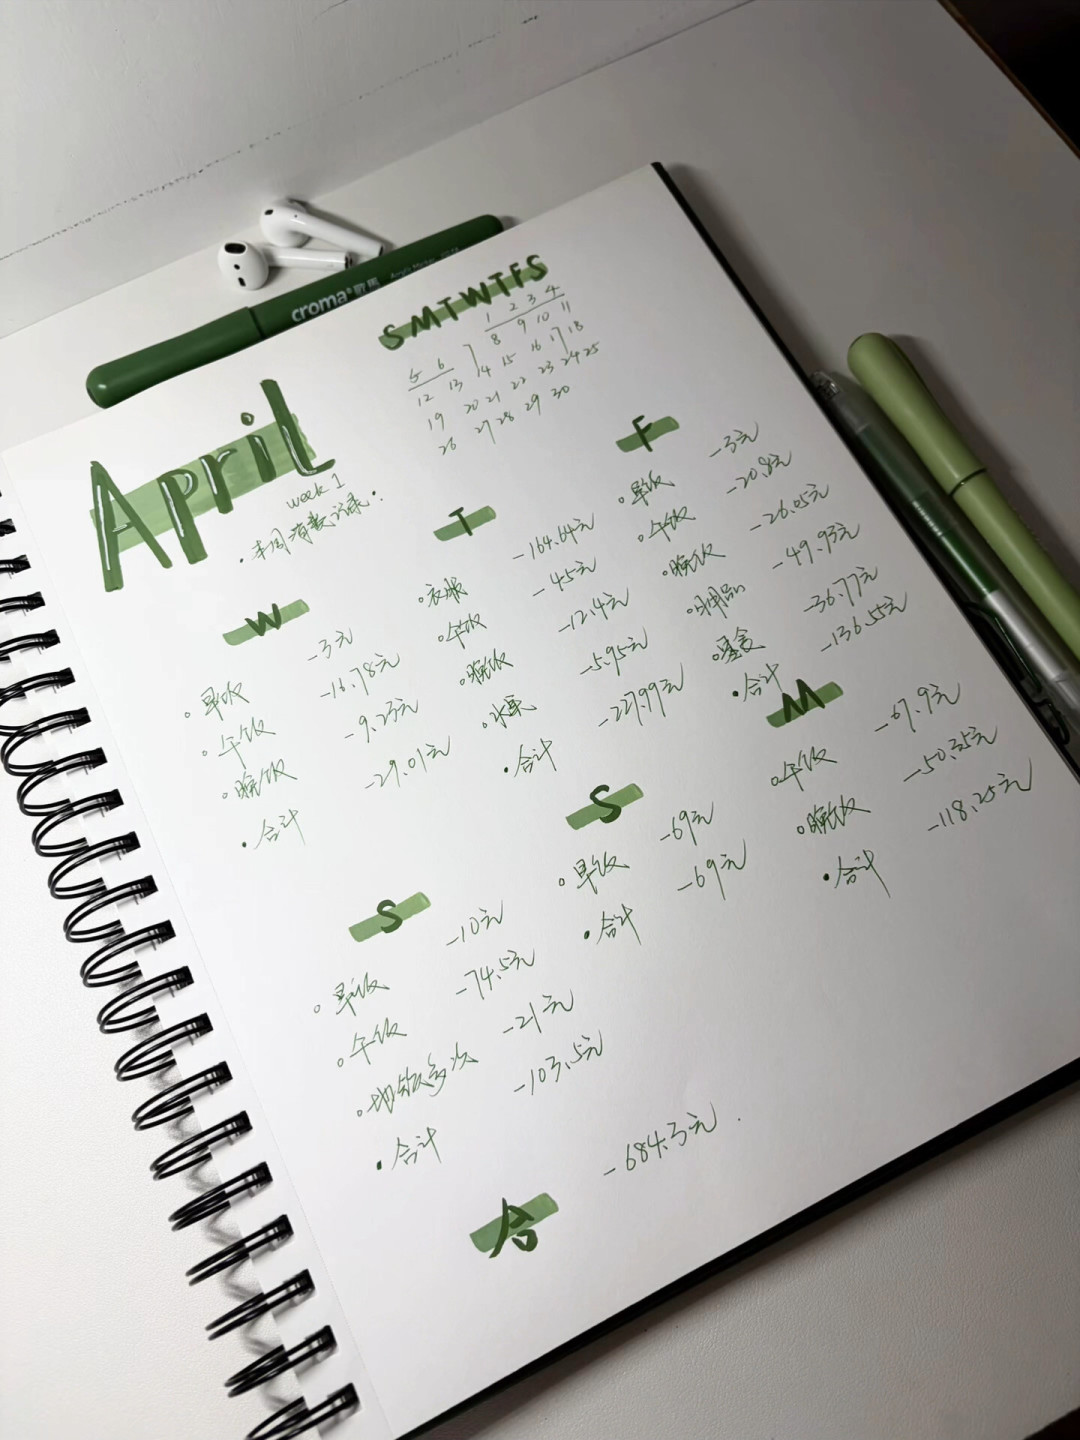 croma®歌馬
SMTWTFS
1 2 3 4
5 6 7 8 9 10 11
12 13 14 15 16 17 18
19 20 21 22 23 24 25
26 27 28 29 30
April
week 1
·本周消费记录·
W
早饭 -3元
午饭 -16.78元
晚饭 -9.23元
合计 -29.01元
T
衣服 -164.64元
午饭 -45元
晚饭 -12.4元
水果 -5.95元
合计 -227.99元
F
早饭 -3元
午饭 -20.8元
晚饭 -26.05元
用品 -49.93元
-36.77元
合计 -136.55元
S
早饭 -10元
午饭 -74.5元
地铁多次 -21元
合计 -103.5元
S
早饭 -69元
合计 -69元
M
午饭 -67.9元
晚饭 -50.35元
合计 -118.25元
合 -684.3元